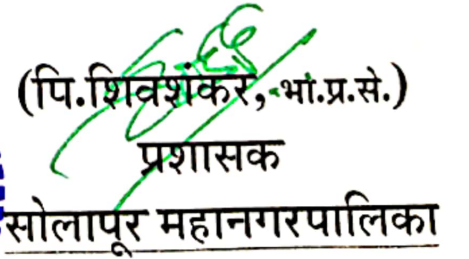 (पि.शिवशंकर, भा.प्र.से.)
प्रशासक
सोलापूर महानगरपालिका